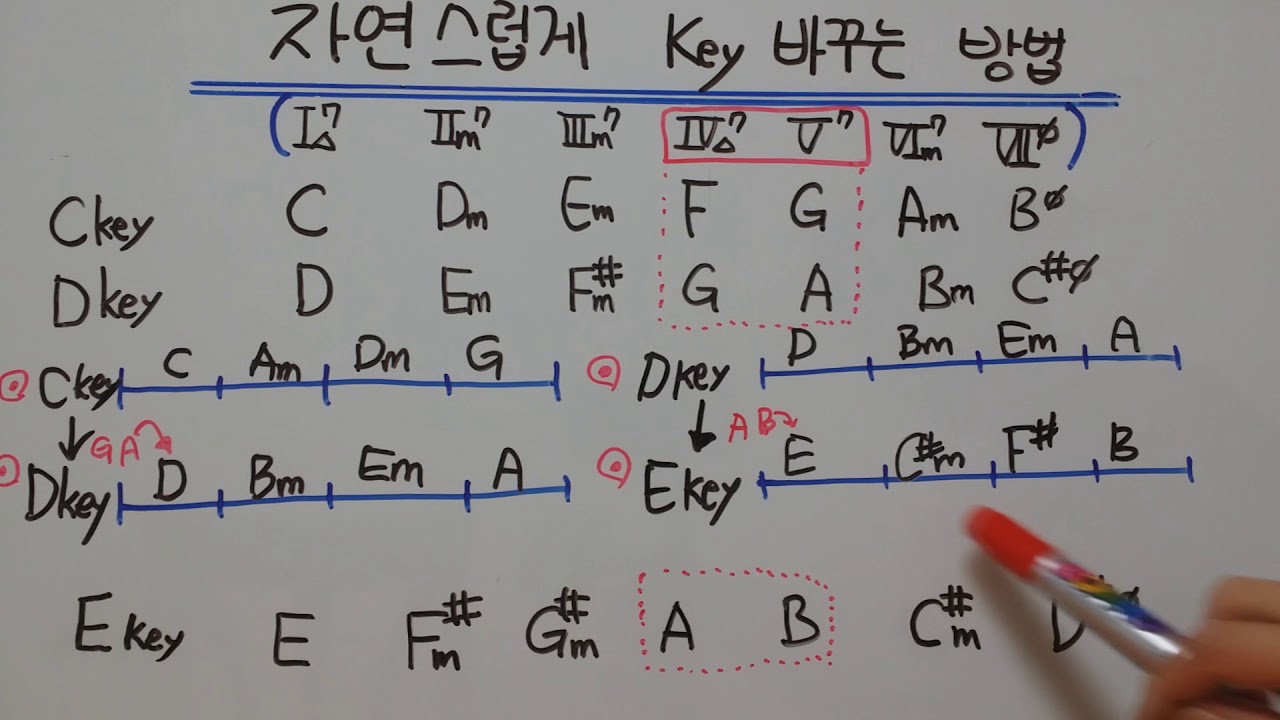 자연스럽게 Key 바꾸는 방법
(I△7 IIm7 IIIm7 IV△7 V7 VIm7 VIIø)
Ckey C Dm Em F G Am Bø
Dkey D Em F#m G A Bm C#ø
Ckey C Am Dm G
Dkey D Bm Em A
G A
Dkey D Bm Em A
A B
Ekey E C#m F# B
Ekey E F#m G#m A B C#m D